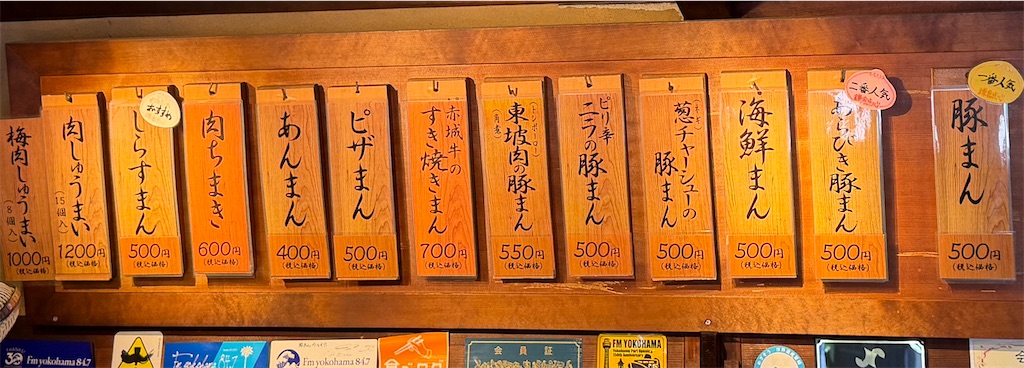 一番人気
豚まん
500円
(税込価格)
二番人気
あらびき豚まん
500円
(税込価格)
海鮮まん
500円
(税込価格)
葱チャーシューの
豚まん
500円
(税込価格)
ピリ辛
ニラの豚まん
500円
(税込価格)
東坡肉の豚まん
(トンポーロー)
(角煮)
550円
(税込価格)
赤城牛の
すき焼きまん
700円
(税込価格)
ピザまん
500円
(税込価格)
あんまん
400円
(税込価格)
肉ちまき
600円
(税込価格)
おすすめ
しらすまん
500円
(税込価格)
肉しゅうまい
(15個入)
1200円
(税込価格)
梅肉しゅうまい
(8個入)
1000円
(税込価格)
30
Fm yokohama 84.7
Fm yokohama 84.7
食べログ
会員証
FM YOKOHAMA